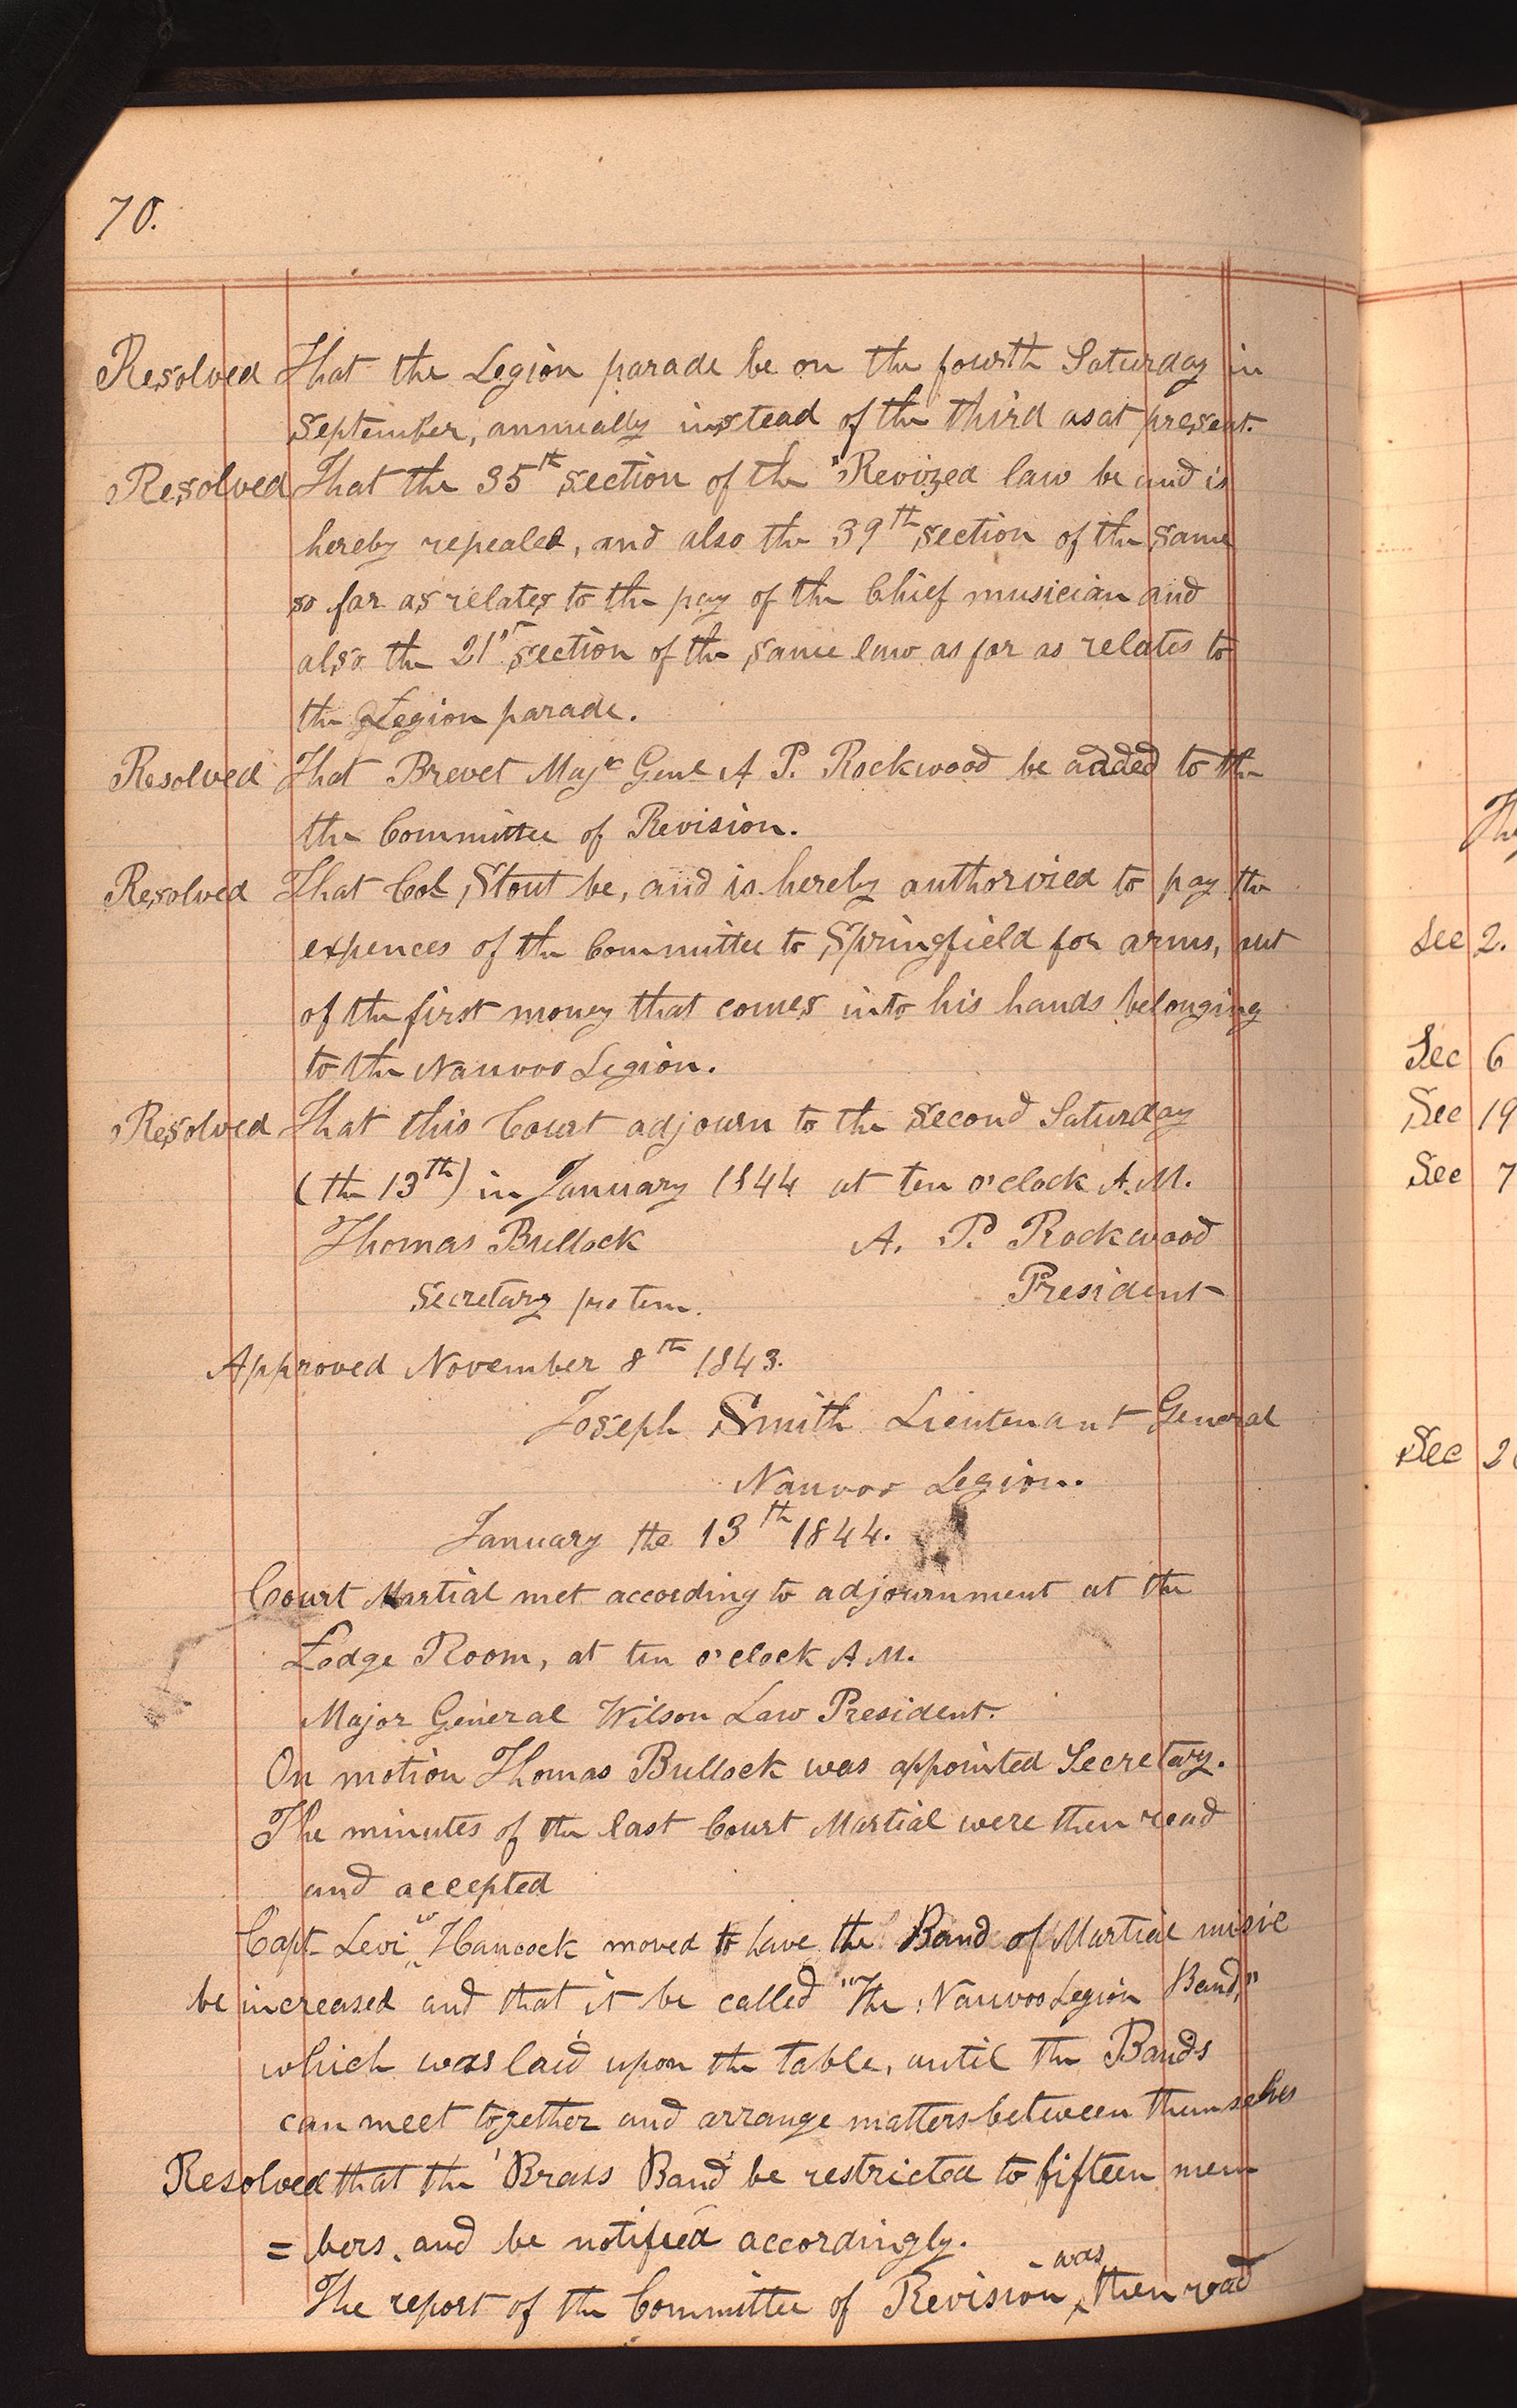 70.
Resolved That the Legion parade be on the fourth Saturday in
September, annually instead of the third as at present.
Resolved That the 35th section of the "Revized law be and is
hereby repealed, and also the 39th section of the same
so far as relates to the pay of the Chief musician and
also the 21st section of the same law as far as relates to
the Legion parade.
Resolved That Brevet Majr Genl A P. Rockwood be added to the
the Committee of Revision.
Resolved That Col Stout be, and is hereby authorvied to pay the
expences of the Committee to Springfield for arms, out
of the first money that comes into his hands belonging
to the Nauvoo Legion.
Resolved That this Court adjourn to the second Saturday
(the 13th) in January 1844 at ten o'clock A.M.
Thomas Bullock A. P. Rockwood
Secretary pro tem. President
Approved November 8th 1843.
Joseph Smith Lieutenant General
Nauvoo Legion.
January the 13th 1844.
Court Martial met according to adjournment at the
Lodge Room, at ten o'clock A.M.
Major General Wilson Law President.
On motion Thomas Bullock was appointed Secretary.
The minutes of the last Court Martial were then read
and accepted
Capt Levi W Hancock moved to have the Band of Martial music
be increased and that it be called "The Nauvoo Legion Band,"
which was laid upon the table, until the Bands
can meet together and arrange matters between themselves
Resolved that the Brass Band be restricted to fifteen mem
= bers, and be notified accordingly.
The report of the Committee of Revision was then read
Sec 2.
Sec 6
Sec 19
Sec 7
Sec 2